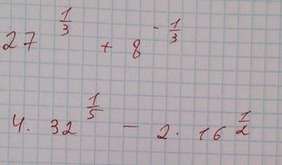 27^(1/3) + 8^(-1/3)
4. 32^(1/5) - 2. 16^(1/2)